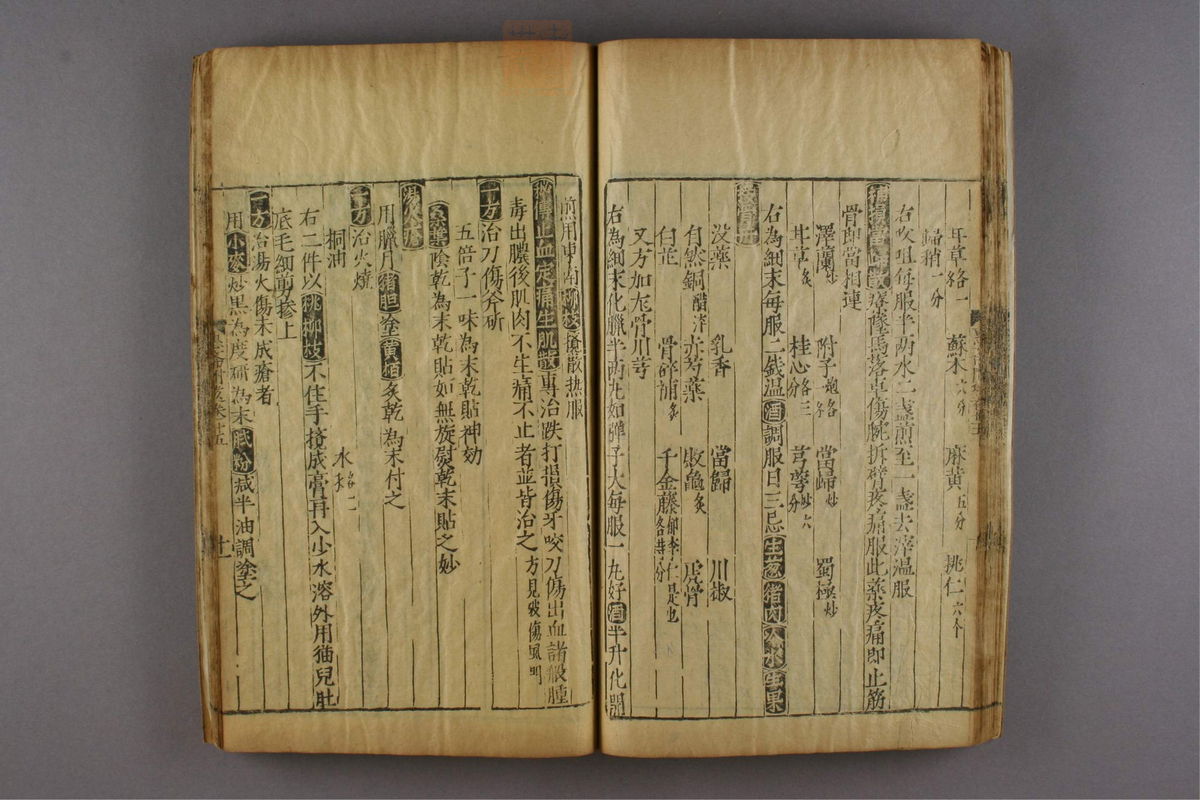 耳草各一 蘇木六分 麻黄五分 桃仁六个
歸稍一分
右㕮咀每服半两水二盞煎至一盞去滓温服
補損當歸散療墜馬落車傷腕折臂疼痛服此藥疼痛即止筋
骨即當相連
澤蘭炒 附子炮各 當歸炒 蜀極炒
甘草炙 桂心各三分 芎藭炒六分
右為細末每服二錢温酒調服日三忌生葱猪肉冷水生果
接骨丹
没藥 乳香 當歸 川椒
自然銅醋淬 赤芍藥 敗龜炙 虎骨
白芷 骨碎補炙 千金藤郁李仁是也各三分
又方加龙骨川芎
右為細末化臘半两丸如彈子大每服一丸好酒半升化開
煎用東南柳枝攪散热服
秘傳止血定痛生肌散專治跌打損傷牙咬刀傷出血諸般腫
毒出膿後肌肉不生痛不止者並皆治之方見破傷風門
一方治刀傷斧斫
五倍子一味為末乾貼神効
陰乾為末乾貼如無旋熨乾末貼之妙
湯火瘡
用臘月猪胆塗黄栢炙乾為末付之
一方治火燒
桐油 水各二
右二件以桃柳枝不住手攪成膏再入少水溶外用猫兒肚
底毛細剪掺上
一方治湯火傷未成瘡者
用小麥炒黒為度研為末膩粉减半油調塗之
十一